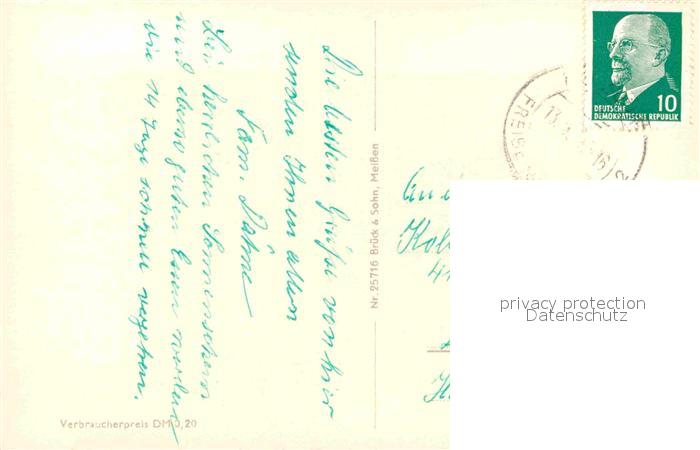 Die besten Grüße von hier
senden Ihnen allen
Fam. Dähne
Bei herrlichem Sonnenschein
und ebenso gutem Essen werden
die 14 Tage schnell vergehen.
Verbraucherpreis DM 0,20
Nr. 25716 Brück & Sohn, Meißen
10
DEUTSCHE
DEMOKRATISCHE REPUBLIK
privacy protection
Datenschutz